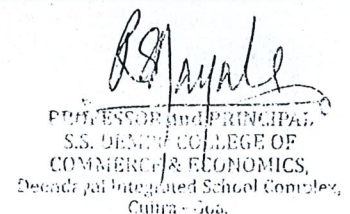 PROFESSOR and PRINCIPAL
S.S. DEMPO COLLEGE OF
COMMERCE & ECONOMICS,
Integrated School Complex,
Goa.